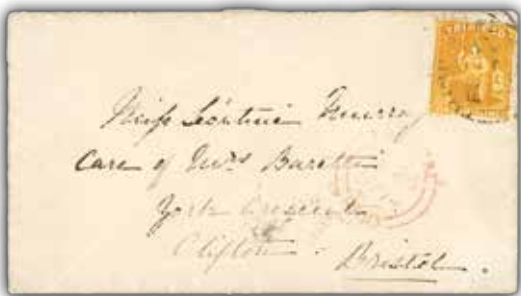 Miss Léontine Murray
Care of Mrs Barett
York Crescent
Clifton.
Bristol.